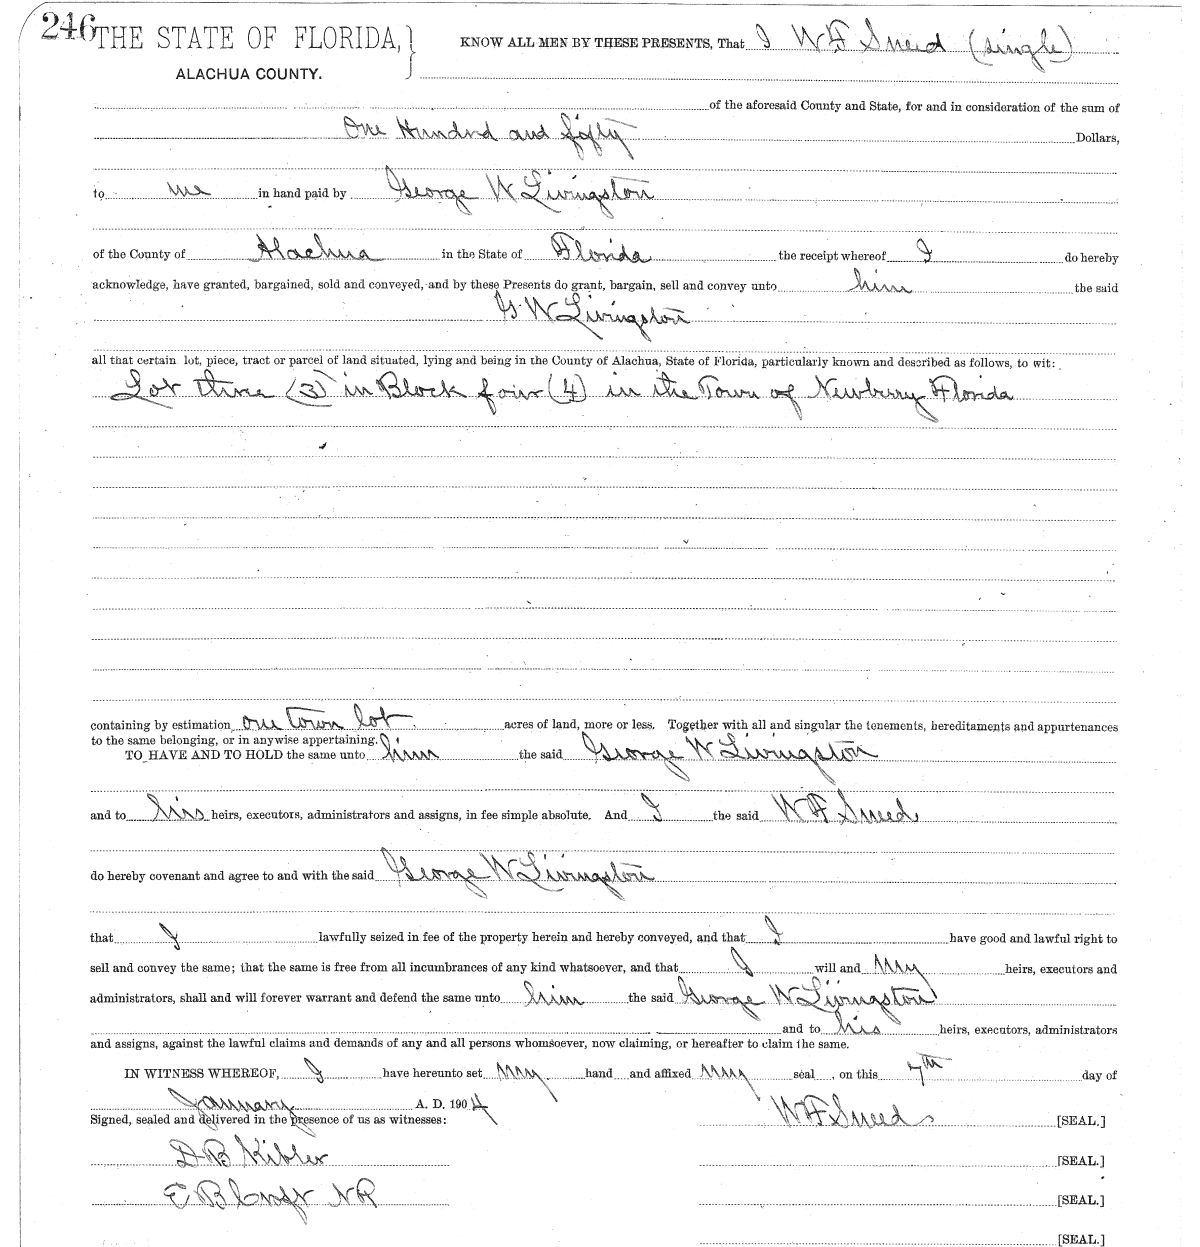 246 THE STATE OF FLORIDA, } KNOW ALL MEN BY THESE PRESENTS, That I W F Sneed (single)
ALACHUA COUNTY.
of the aforesaid County and State, for and in consideration of the sum of
One Hundred and fifty Dollars,
to me in hand paid by George W Livingston
of the County of Alachua in the State of Florida the receipt whereof I do hereby
acknowledge, have granted, bargained, sold and conveyed, and by these Presents do grant, bargain, sell and convey unto him the said
G. W Livingston
all that certain lot, piece, tract or parcel of land situated, lying and being in the County of Alachua, State of Florida, particularly known and described as follows, to wit:
Lot three (3) in Block four (4) in the Town of Newberry Florida
containing by estimation one town lot acres of land, more or less. Together with all and singular the tenements, hereditaments and appurtenances
to the same belonging, or in anywise appertaining.
TO HAVE AND TO HOLD the same unto him the said George W Livingston
and to his heirs, executors, administrators and assigns, in fee simple absolute. And I the said W F Sneed
do hereby covenant and agree to and with the said George W Livingston
that I lawfully seized in fee of the property herein and hereby conveyed, and that I have good and lawful right to
sell and convey the same; that the same is free from all incumbrances of any kind whatsoever, and that I will and my heirs, executors and
administrators, shall and will forever warrant and defend the same unto him the said George W Livingston
and to his heirs, executors, administrators
and assigns, against the lawful claims and demands of any and all persons whomsoever, now claiming, or hereafter to claim the same.
IN WITNESS WHEREOF, I have hereunto set my hand and affixed my seal, on this 7th day of
January A. D. 1904 W F Sneed [SEAL.]
Signed, sealed and delivered in the presence of us as witnesses:
D B Kibler [SEAL.]
E B Croft NR [SEAL.]
[SEAL.]